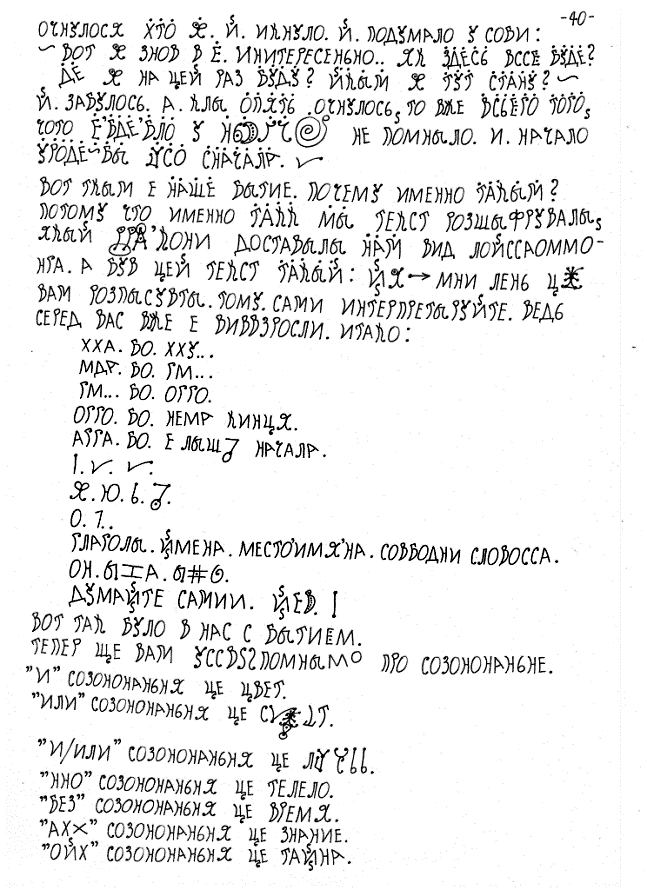 -40-
ОЧНУЛОСЯ ХТО Я. Й. ИКНУЛО. Й. ПОДУМАЛО У СОВИ:
~ ВОТ Я ЗНОВ В Ё. ИНИТЕРЕСЕНЬНО.. ЯК ЗДЕСЬ ВССЕ БУДЕ?
ДЕ Я НА ЦЕЙ РАЗ БУДУ? ЙКЫМ Я ТУТ СТАНУ? ~
Й. ЗАБУЛОСЬ. А. КЛЫ ОПЯТЬ ОЧНУЛОСЬ, ТО ВЖЕ ВСЬЕГО ТОГО,
ЧОТО Ё'ВДЕ'БЛО У НЕ ПОМНЫЛО. И. НАЧАЛО
УРОДЕ~БЫ СНАЧАЛА.
ВОТ ТКЫМ Е НАШЕ БЫТИЕ. ПОЧЕМУ ИМЕННО ТАКЫМ?
ПОТОМУ ЧТО ИМЕННО ТАКК МЫ ТЕКСТ РОЗШЫФРУВАЛЫ,
ЯКЫЙ ДОСТАВЫЛЫ НАМ ВИД ЛОЙССАОММО-
НГА. А БУВ ЦЕЙ ТЕКСТ ТАКЫЙ: → МНИ ЛЕНЬ
ВАМ РОЗПЫСУВТЫ. ТОМУ. САМИ ИНТЕРПРЕТЫРУЙТЕ. ВЕДЬ
СЕРЕД ВАС ВЖЕ Е ВИВВЗРОСЛИ. ИТАКО:
ХХА. БО. ХХУ...
МДГ. БО. ГМ...
ГМ... БО. ОГГО.
ОГГО. БО. НЕМА КИНЦЯ.
АГГА. БО. Е ЛЫШ НАЧАЛА.
Я. Ю. Ь.
О. 1..
ГЛАГОЛЫ. ЙМЕНА. МЕСТО'ИМЯ'НА. СОВБОДНИ СЛОВОССА.
ДУМАЙТЕ САМИИ.
ВОТ ТАК БУЛО В НАС С БЫТИЕМ.
ТЕПЕР ЩЕ ВАМ ПРО СОЗОНОНАНЬНЕ.
"И" СОЗОНОНАНЬНЯ ЦЕ ЦВЕТ.
"ИЛИ" СОЗОНОНАНЬНЯ ЦЕ
"И/ИЛИ" СОЗОНОНАНЬНЯ ЦЕ
"ННО" СОЗОНОНАНЬНЯ ЦЕ ТЕЛЕЛО.
"БЕЗ" СОЗОНОНАНЬНЯ ЦЕ ВРЕМЯ.
"АХХ" СОЗОНОНАНЬНЯ ЦЕ ЗНАНИЕ.
"ОЙХ" СОЗОНОНАНЬНЯ ЦЕ ТАЙНА.